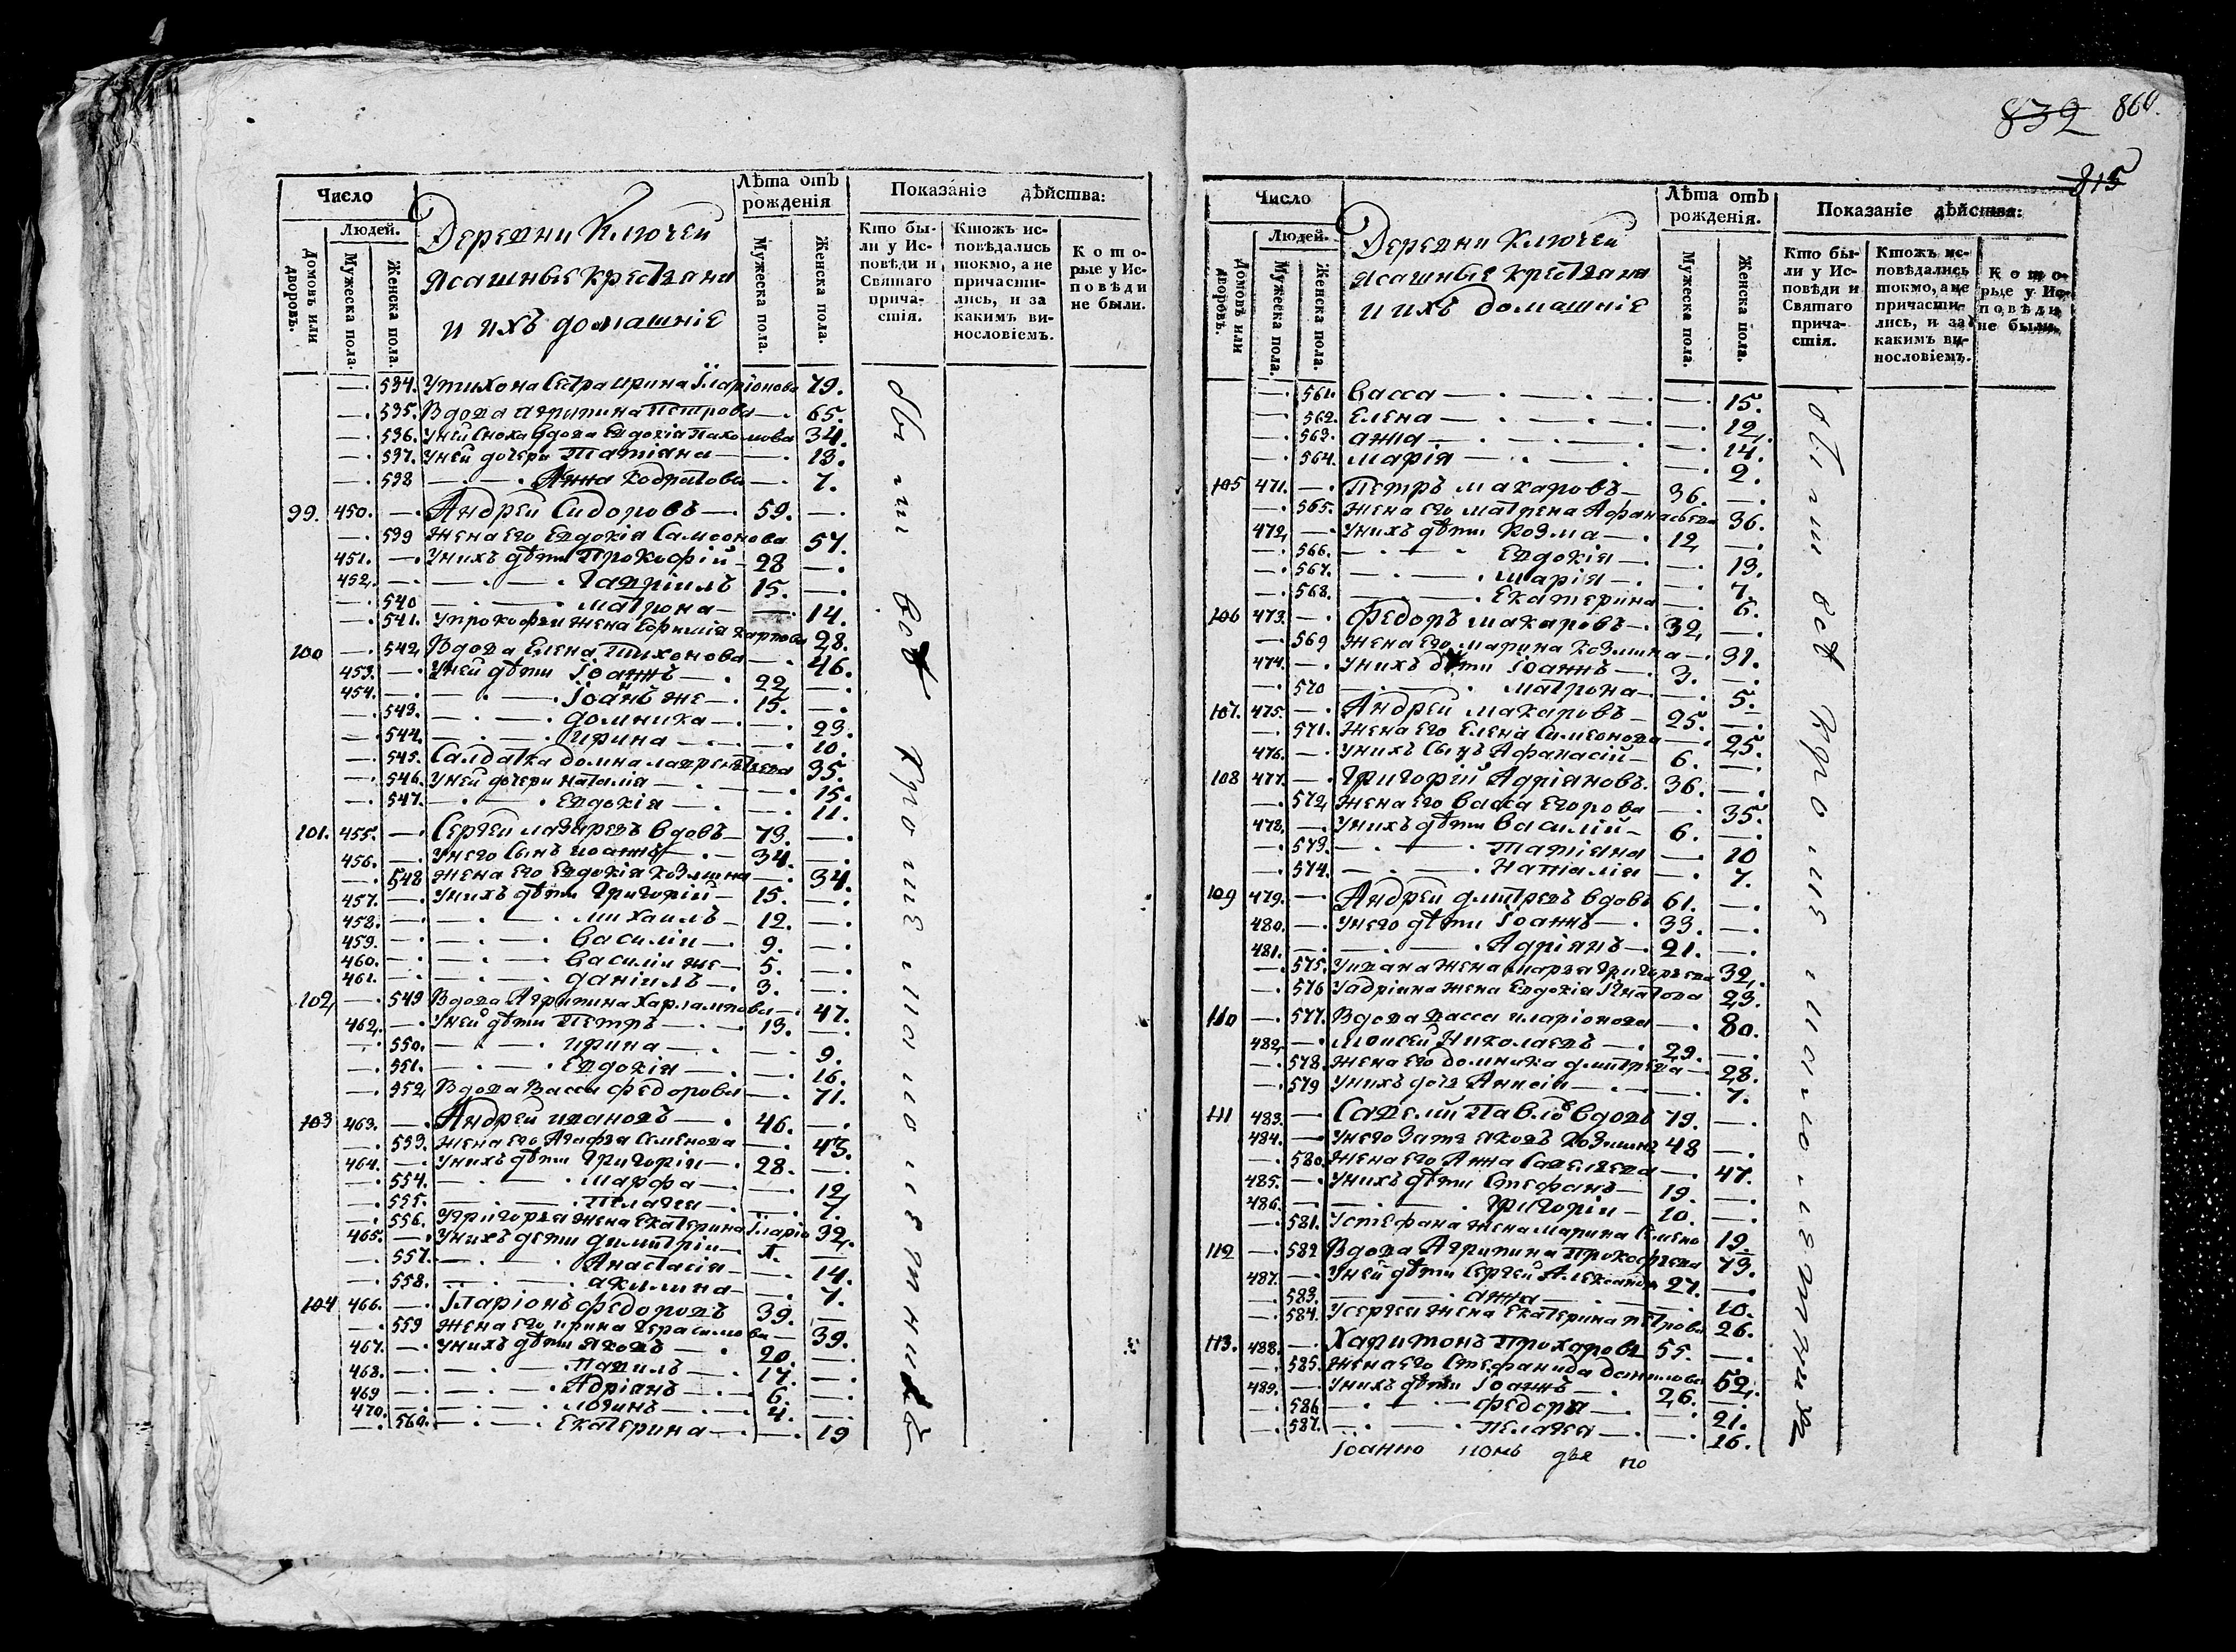 832 860.
315
Число
Людей.
Домовъ или дворовъ.
Мужеска пола.
Женска пола.
Деревни Ключей
ясашные крестьяне
и ихъ домашніе
Лѣта отъ рожденія
Мужеска пола.
Женска пола.
Показаніе дѣйства:
Кто были у Исповѣди и Святаго причастія.
Ктожъ исповѣдались токмо, а не причастились, и за какимъ винословіемъ.
Которые у Исповѣди не были.
—. 534. У тихона Сестра ирина Iларіонова 79.
—. 535. Вдова агрипина Петрова —. 65.
—. 536. У ней Сноха вдова Евдокія Пахомова 34.
—. 537. У ней дочери Татіана —. 13.
—. 538 —. —. Анна Кодратова —. 7.
99. 450. —. Андрей Сидоровъ —. 59. —.
—. 539 Жена его Евдокія Самсонова 57.
451. —. У нихъ дѣти Прокофій — 28 —.
452. —. —. —. Гавріилъ 15. —.
—. 540 —. —. матрона — —. 14.
—. 541. У прокофья жена Евфимія карпова 28.
100 —. 542 Вдова Елена Тихонова —. 46.
453. —. У ней дѣти Іоаннъ —. 22 —.
454. —. —. —. Іоаннъ же —. 15. —.
—. 543. —. —. домника —. —. 23.
—. 544. —. —. ирина —. —. 10.
—. 545. Салдатка домна лаврентьева 35.
—. 546. У ней дочери наталія —. —. 15.
—. 547. —. —. Евдокія —. —. 11.
101. 455. —. Сергей лазаревъ вдовъ — 73. —.
456. —. У него Сынъ иоаннъ —. 34. —.
—. 548 Жена его Евдокія козмина —. 34.
457. —. У нихъ дѣти Григорій — 15. —.
458. —. —. —. михаилъ —. 12. —.
459. —. —. —. василій —. 9. —.
460. —. —. —. василій же —. 5. —.
461. —. —. —. даніилъ —. 3. —.
102 —. 549 Вдова Агрипина Харлампова —. 47.
462. —. У ней дѣти Петръ —. 13. —.
—. 550. —. —. ирина —. —. 9.
—. 551. —. —. Евдокія —. —. 16.
—. 552 Вдова Васса федорова —. 71.
103 463. —. Андрей ивановъ —. 46. —.
—. 553. Жена его Агафья Семенова —. 43.
464. —. У нихъ дѣти Григорій —. 28. —.
—. 554. —. —. марфа —. —. 12
—. 555. —. —. Пелагея —. —. 7.
—. 556. У григорья жена Екатерина Iларіо 32.
465. —. У нихъ дети димитрій — —.
—. 557. —. —. Анастасія — —. 14.
—. 558. —. —. акилина — —. 7.
104 466. —. Iларіонъ федоровъ 39. —.
—. 559 Жена его ирина Герасимова — 39.
467. —. У нихъ дѣти яковъ —. 20. —.
468. —. —. —. Павилъ —. 17. —.
469 —. —. —. Адріанъ —. 6. —.
470. —. —. —. логинъ —. 4. —.
—. 560. —. —. Екатерина —. —. 19
были всѣ
Число
Людей.
Домовъ или дворовъ.
Мужеска пола.
Женска пола.
Деревни Ключей
ясашные крестьяне
и ихъ домашніе
Лѣта отъ рожденія.
Мужеска пола.
Женска пола.
Показаніе дѣйства:
Кто были у Исповѣди и Святаго причастія.
Ктожъ исповѣдались токмо, а не причастились, и за какимъ винословіемъ.
Которые у Исповѣди не были.
—. 561. васса —. —. —. 15.
—. 562. Елена —. —. —. 12.
—. 563. анна —. —. —. 14.
—. 564. марія —. —. —. 2.
105 471. —. Петръ макаровъ — 36. —.
—. 565. Жена его матрена Афанасьева 36.
472 —. У нихъ дѣти Козма —. 12 —.
—. 566. —. —. Евдокія —. —. 13.
—. 567. —. —. марія —. —. 7.
—. 568. —. —. Екатерина —. 6.
106 473. —. Федоръ макаровъ —. 32 —.
—. 569 Жена его марина Козмина —. 31.
474. —. У нихъ дѣти Іоаннъ —. 3. —.
—. 570 —. —. матрона —. —. 5.
107. 475. —. Андрей макаровъ — 25. —.
—. 571. Жена его Елена Симеонова —. 25.
476. —. У нихъ сынъ Афанасій — 6. —.
108 477. —. Григорій Адріановъ. 36. —.
—. 572 Жена его васса егорова —. 35.
478. —. У нихъ дѣти василій — 6. —.
—. 573. —. —. татіана —. 10
—. 574. —. —. наталія —. 7.
109 479. —. Андрей дмитревъ вдовъ 61. —.
480. —. У него дѣти Іоаннъ —. 33. —.
481. —. —. —. Адріянъ —. 21. —.
—. 575. У ивана жена марья Григорьева 32.
—. 576 У адріяна жена Евдокія Игнатова 23.
110 —. 577. Вдова васса иларіонова —. 80.
482 —. моисей николаевъ —. 29. —.
—. 578. Жена его домника дмитрева —. 28.
—. 579 У нихъ дочь Анисія —. —. 7.
111 483. —. Савелій Павловъ вдовъ 79. —.
484. —. У него зять яковъ козминъ 48 —.
—. 580. Жена его Анна Савельева —. 47.
485. —. У нихъ дѣти Стефанъ — 19. —.
486. —. —. —. григорій — 10. —.
—. 581. У стефана жена марина Семено 19.
112 —. 582 Вдова Агрипина прокофьева 73.
487. —. У ней дѣти Сергей Александр 27. —.
—. 583. —. —. анна —. —. 10.
—. 584. У сергея жена Екатерина петрова 26.
113. 488. —. Харитонъ Прохоровъ 55. —.
—. 585. Жена его Стефанида данилова 52.
489. —. У нихъ дѣти Іоаннъ —. 26. —.
—. 586 —. —. федора —. —. 21.
—. 587. —. —. пелагея —. —. 16.
были всѣ